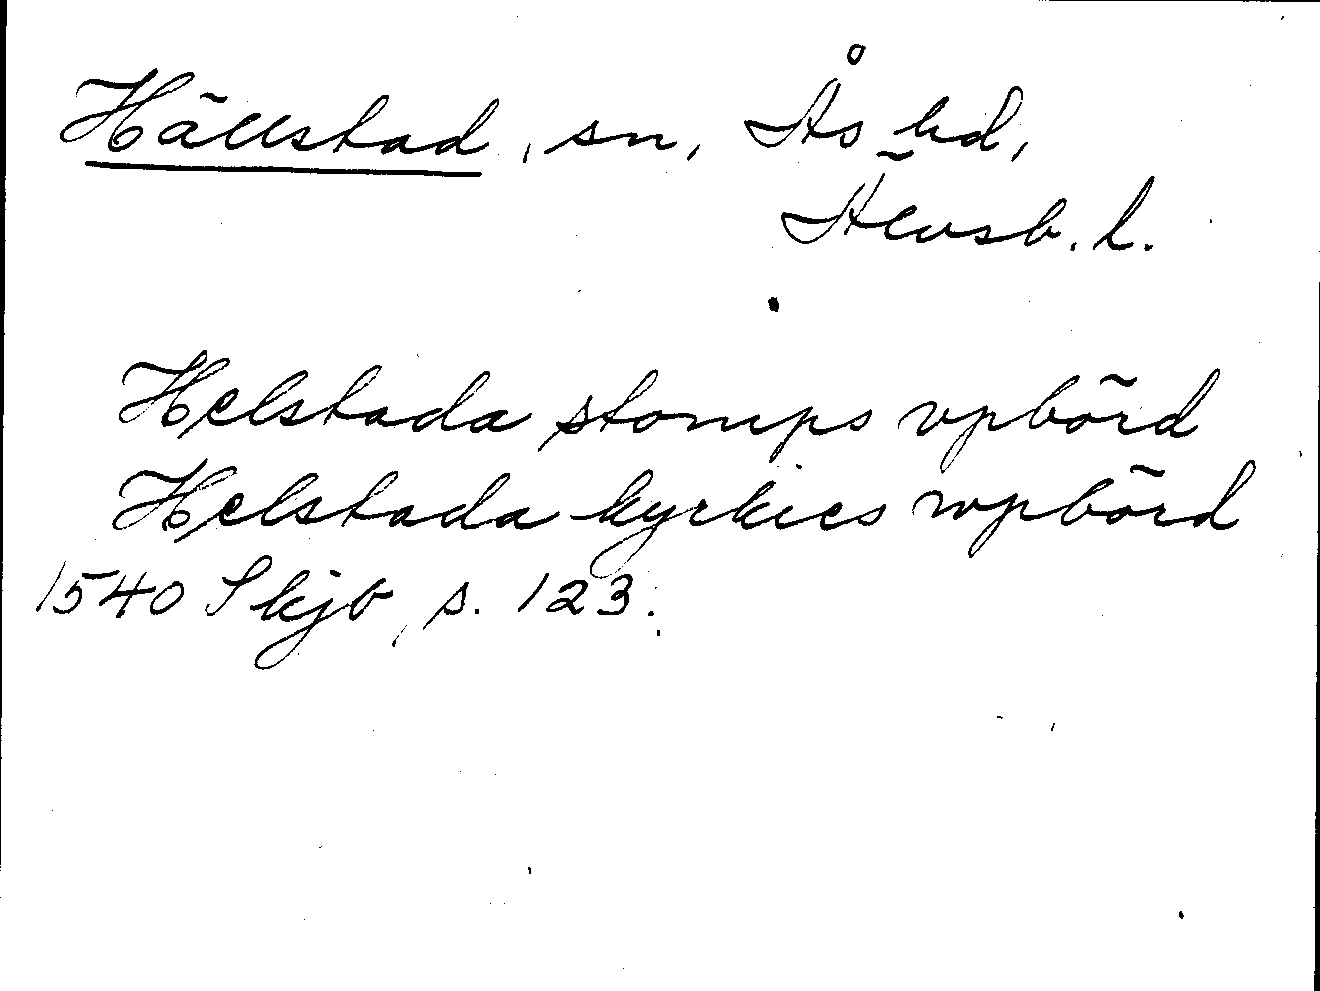 Hällstad, sn, Ås hd,
Älvsb. l.
Helstada stomps vpbörd
Helstada kyrkies wpbörd
1540 Skjb, s. 123.